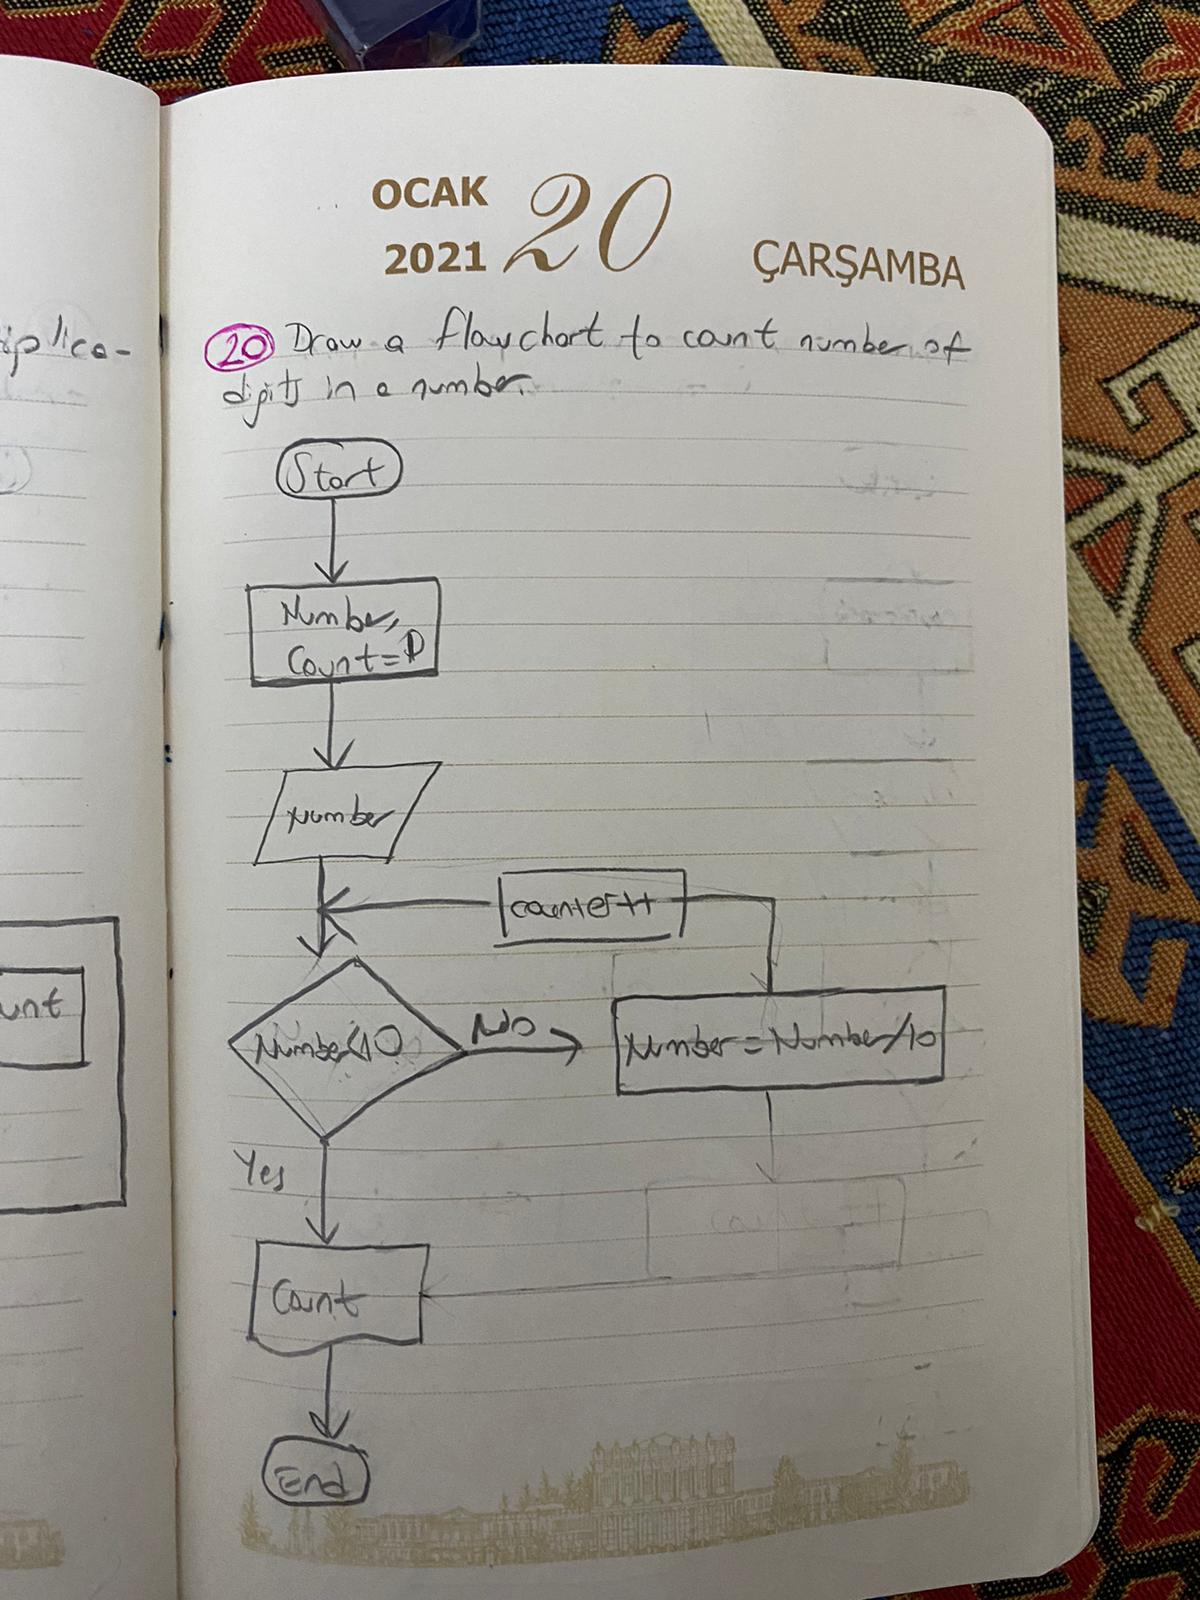 OCAK
2021
20
ÇARŞAMBA
20 Draw a flowchart to count number of
digits in a number.
Start
Number,
Count=
Number
counter++
Number<10
No
Number = Number/10
Yes
Count
End
unt